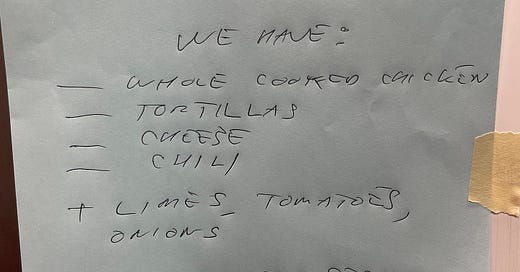 WE HAVE:
— WHOLE COOKED CHICKEN
— TORTILLAS
— CHEESE
— CHILI
+ LIMES, TOMATOES,
ONIONS